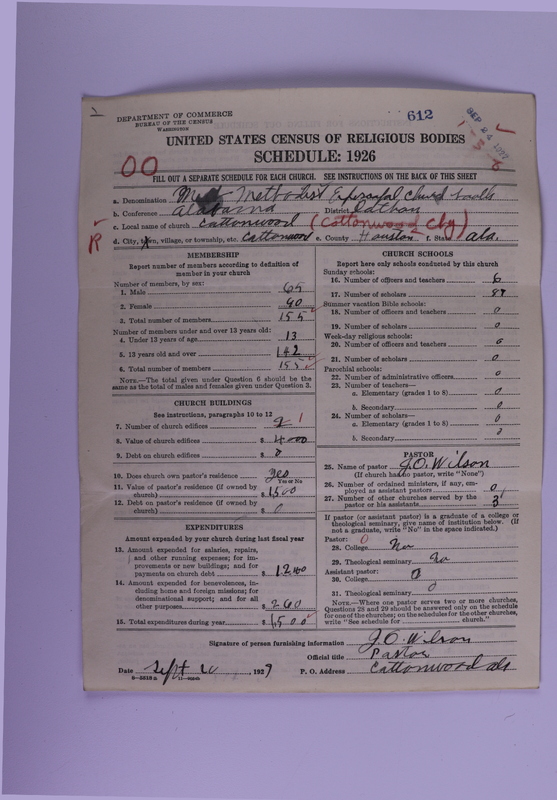 DEPARTMENT OF COMMERCE
BUREAU OF THE CENSUS
WASHINGTON
612
SEP 24 1927
UNITED STATES CENSUS OF RELIGIOUS BODIES
SCHEDULE: 1926
OO
FILL OUT A SEPARATE SCHEDULE FOR EACH CHURCH. SEE INSTRUCTIONS ON THE BACK OF THIS SHEET
a. Denomination Methodist Episcopal church South
b. Conference Alabama District Dothan
c. Local name of church Cottonwood (Cottonwood Chg)
R
d. City, town, village, or township, etc. Cottonwood e. County Houston f. State Ala.
MEMBERSHIP
Report number of members according to definition of member in your church
Number of members, by sex:
1. Male 65
2. Female 90
3. Total number of members 155
Number of members under and over 13 years old:
4. Under 13 years of age 13
5. 13 years old and over 142
6. Total number of members 155
NOTE.—The total given under Question 6 should be the same as the total of males and females given under Question 3.
CHURCH BUILDINGS
See instructions, paragraphs 10 to 12
7. Number of church edifices 1
8. Value of church edifices $ 4000
9. Debt on church edifices $ 0
10. Does church own pastor's residence yes
Yes or No
11. Value of pastor's residence (if owned by church) $ 1500
12. Debt on pastor's residence (if owned by church) $ 0
EXPENDITURES
Amount expended by your church during last fiscal year
13. Amount expended for salaries, repairs, and other running expenses; for improvements or new buildings; and for payments on church debt $ 1240
14. Amount expended for benevolences, including home and foreign missions; for denominational support; and for all other purposes $ 260
15. Total expenditures during year $ 1500
CHURCH SCHOOLS
Report here only schools conducted by this church
Sunday schools:
16. Number of officers and teachers 6
17. Number of scholars
Summer vacation Bible schools:
18. Number of officers and teachers 0
19. Number of scholars 0
Week-day religious schools:
20. Number of officers and teachers 0
21. Number of scholars 0
Parochial schools:
22. Number of administrative officers 0
23. Number of teachers—
a. Elementary (grades 1 to 8) 0
b. Secondary 0
24. Number of scholars—
a. Elementary (grades 1 to 8) 0
b. Secondary
PASTOR
25. Name of pastor J.O. Wilson
(If church has no pastor, write "None")
26. Number of ordained ministers, if any, employed as assistant pastors 0
27. Number of other churches served by the pastor or his assistants 3
If pastor (or assistant pastor) is a graduate of a college or theological seminary, give name of institution below. (If not a graduate, write "No" in the space indicated.)
Pastor: 0
28. College No
29. Theological seminary No
Assistant pastor:
30. College 0
31. Theological seminary 0
NOTE.—Where one pastor serves two or more churches, Questions 28 and 29 should be answered only on the schedule for one of the churches; on the schedules for the other churches, write "See schedule for church."
Signature of person furnishing information J.O. Wilson
Official title Pastor
Date Sept 20, 1927 P. O. Address Cottonwood Ala